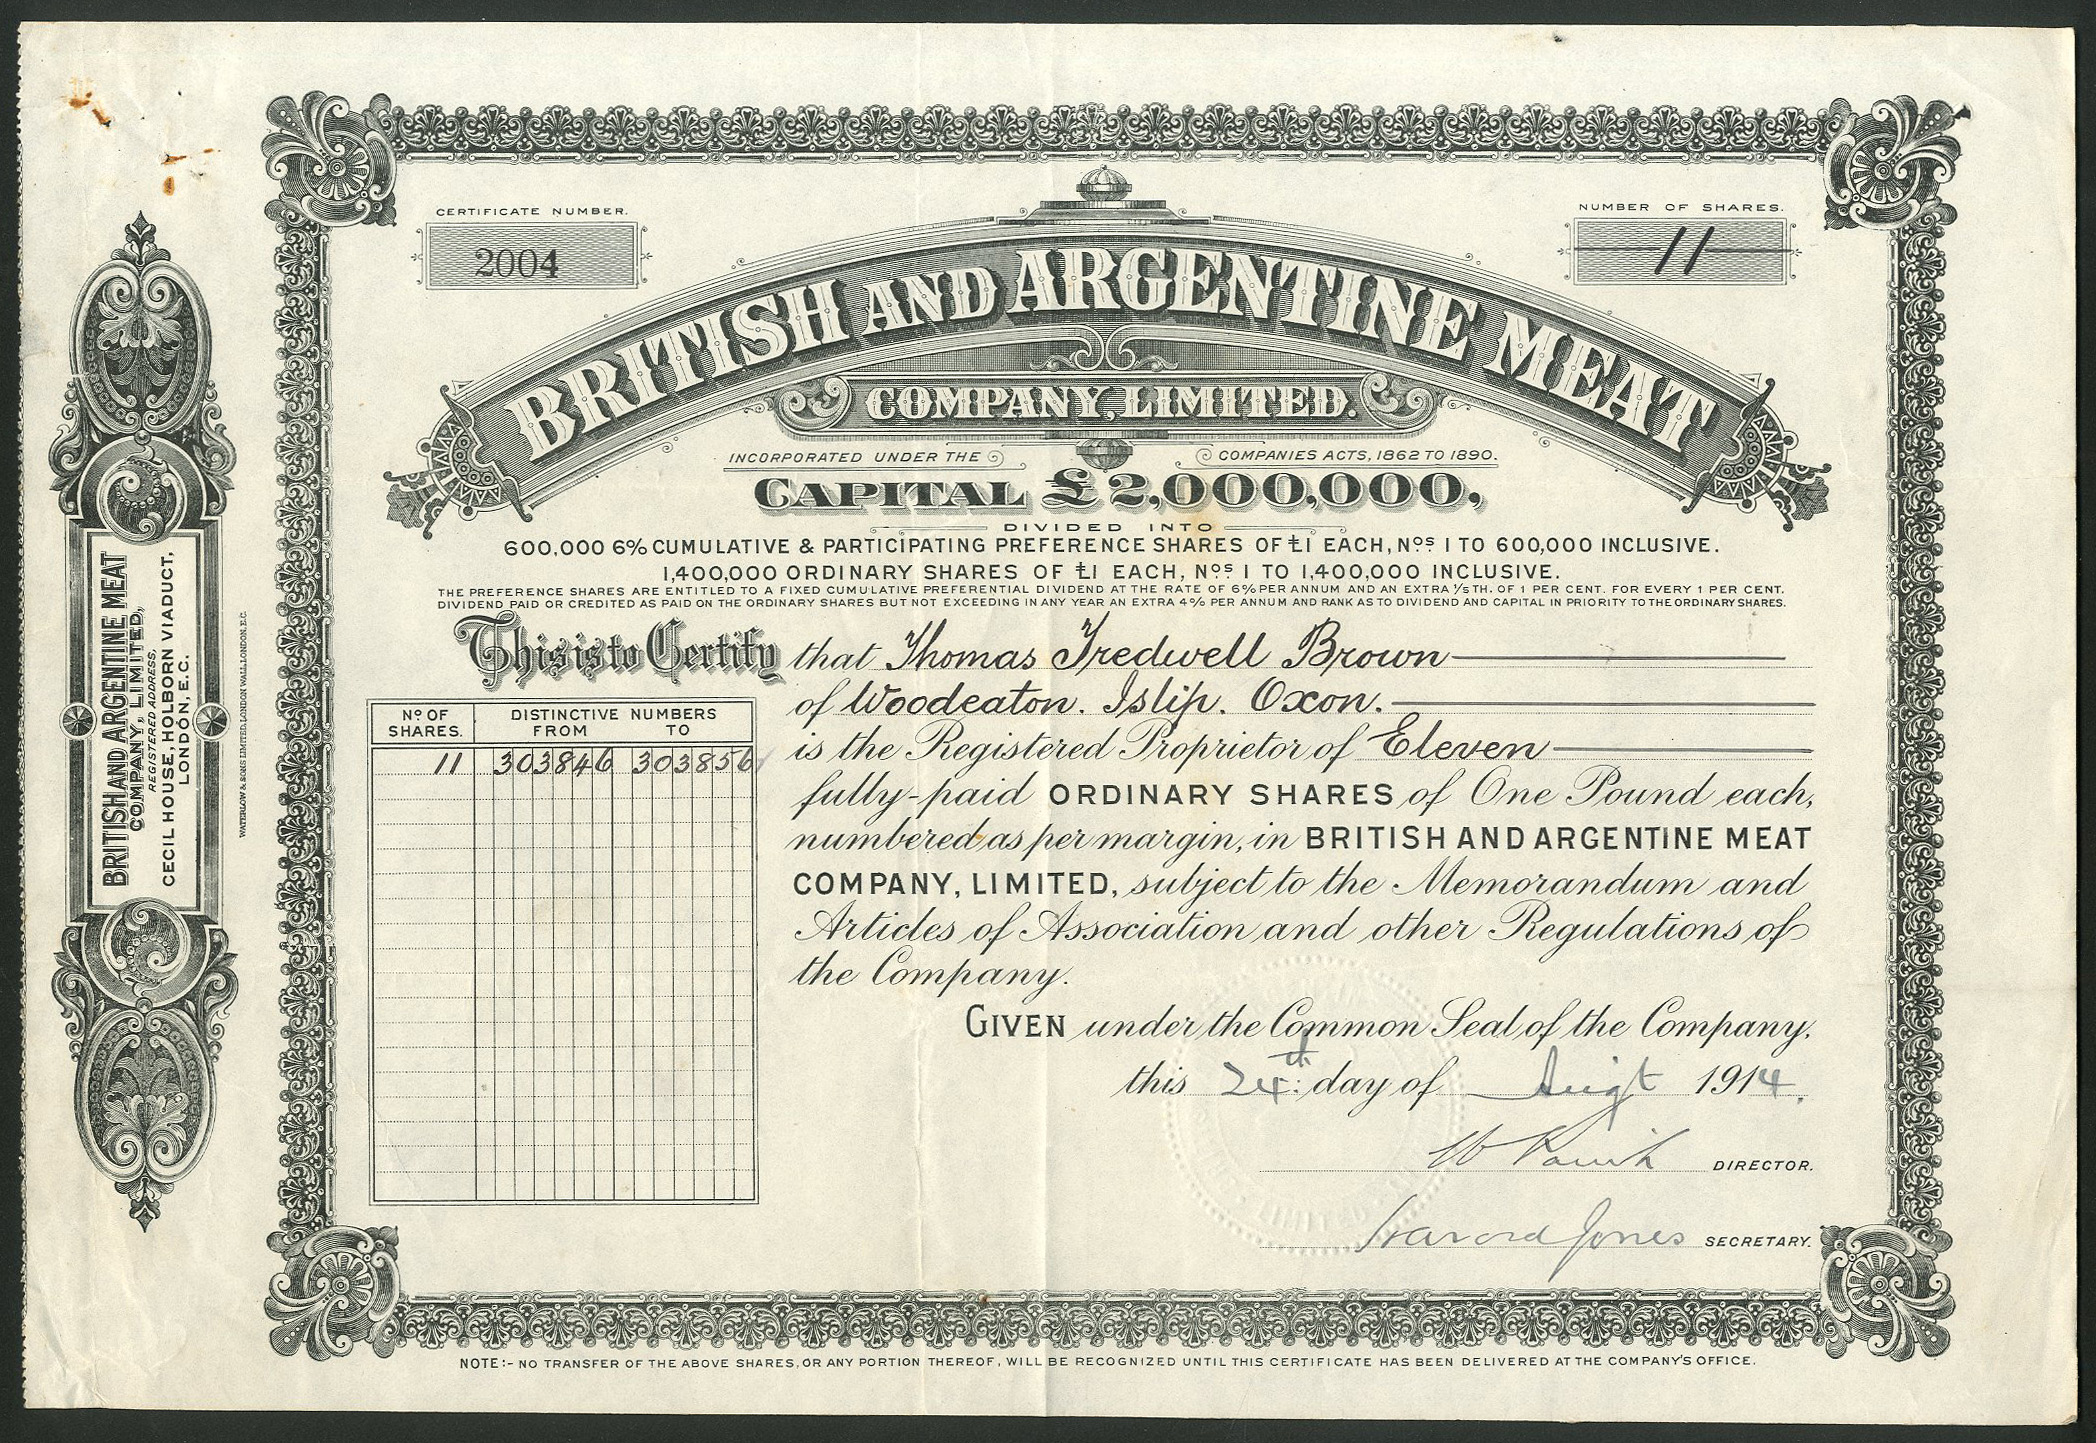 CERTIFICATE NUMBER.
2004
NUMBER OF SHARES.
11
BRITISH AND ARGENTINE MEAT
COMPANY, LIMITED.
INCORPORATED UNDER THE COMPANIES ACTS, 1862 TO 1890.
CAPITAL £2,000,000,
DIVIDED INTO
600,000 6% CUMULATIVE & PARTICIPATING PREFERENCE SHARES OF £1 EACH, Nos 1 TO 600,000 INCLUSIVE.
1,400,000 ORDINARY SHARES OF £1 EACH, Nos 1 TO 1,400,000 INCLUSIVE.
THE PREFERENCE SHARES ARE ENTITLED TO A FIXED CUMULATIVE PREFERENTIAL DIVIDEND AT THE RATE OF 6% PER ANNUM AND AN EXTRA 1/5TH. OF 1 PER CENT. FOR EVERY 1 PER CENT.
DIVIDEND PAID OR CREDITED AS PAID ON THE ORDINARY SHARES BUT NOT EXCEEDING IN ANY YEAR AN EXTRA 4% PER ANNUM AND RANK AS TO DIVIDEND AND CAPITAL IN PRIORITY TO THE ORDINARY SHARES.
This is to Certify that Thomas Tredwell Brown
of Woodeaton. Islip. Oxon.
is the Registered Proprietor of Eleven
fully-paid ORDINARY SHARES of One Pound each,
numbered as per margin, in BRITISH AND ARGENTINE MEAT
COMPANY, LIMITED, subject to the Memorandum and
Articles of Association and other Regulations of
the Company.
GIVEN under the Common Seal of the Company,
this 24th day of Augt 1914.
DIRECTOR.
Jones SECRETARY.
No OF SHARES.
DISTINCTIVE NUMBERS
FROM TO
11 303846 303856
NOTE:- NO TRANSFER OF THE ABOVE SHARES, OR ANY PORTION THEREOF, WILL BE RECOGNIZED UNTIL THIS CERTIFICATE HAS BEEN DELIVERED AT THE COMPANY'S OFFICE.
BRITISH AND ARGENTINE MEAT
COMPANY, LIMITED,
REGISTERED ADDRESS,
CECIL HOUSE, HOLBORN VIADUCT,
LONDON, E.C.
WATERLOW & SONS LIMITED, LONDON WALL, LONDON, E.C.
LIMITED